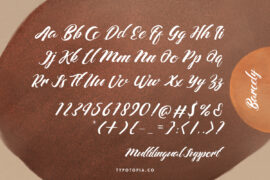 Aa Bb Cc Dd Ee Ff Gg Hh Ii
Jj Kk Ll Mm Nn Oo Pp Qq
Rr Ss Tt Uu Vv Ww Xx Yy Zz
1234567890!@#$%&
Multilingual Support
TYPOTOPIA.CO
Barcely